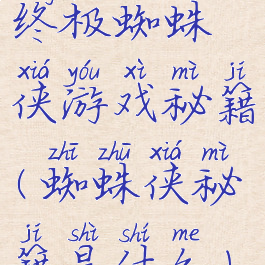 终极蜘蛛
xiá yóu xì mì jí
侠游戏秘籍
zhī zhū xiá mì
(蜘蛛侠秘
jí shì shí me
籍是什么)